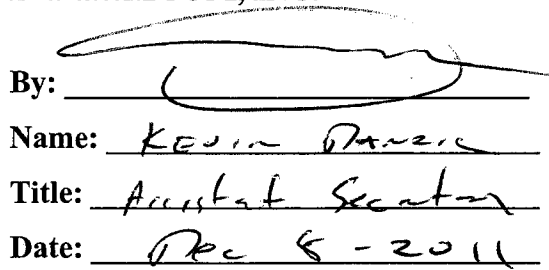 By:
Name: Kevin Danzig
Title: Assistant Secretary
Date: Dec 8 - 2011